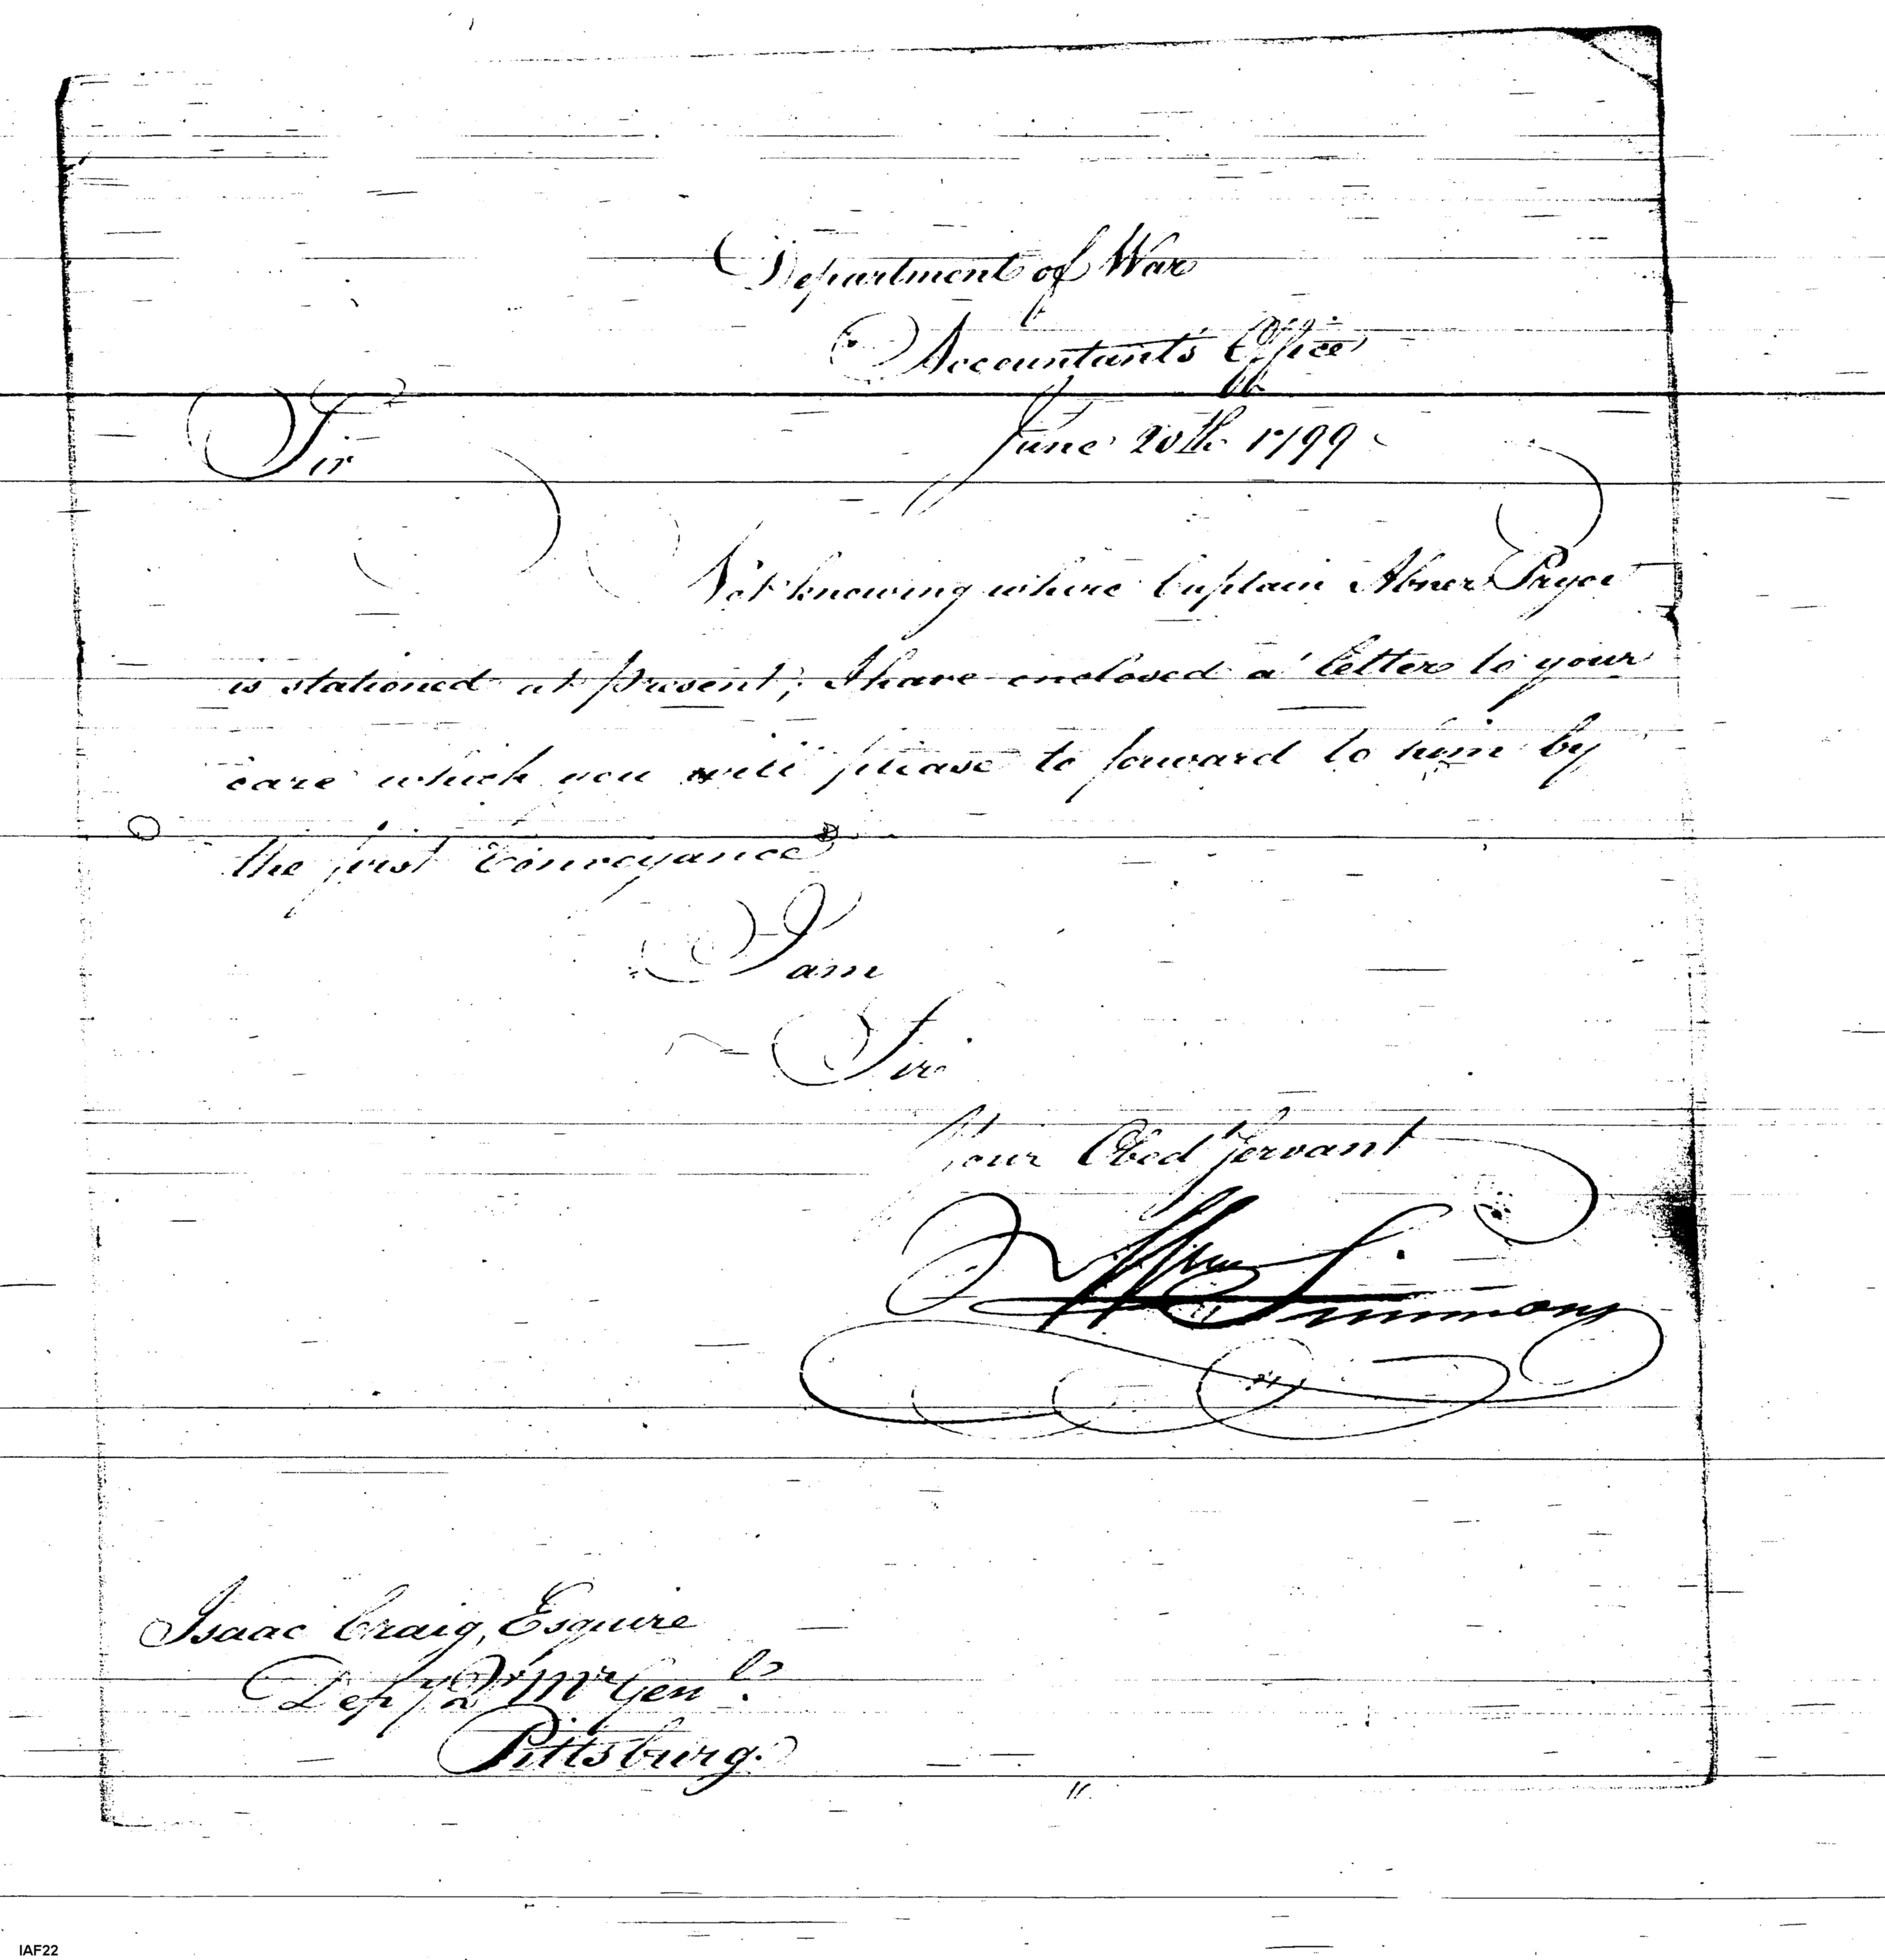 Department of War
Accountant's Office
Sir
June 20th 1799
Not knowing where Captain Abner Pryor
is stationed at present, I have enclosed a letter to your
care which you will please to forward to him by
the first Conveyance
I am
Sir
Your Obed Servant
Wm Simmons
Isaac Craig, Esquire
Depy Qr Mr Genl.
Pittsburg.
IAF22